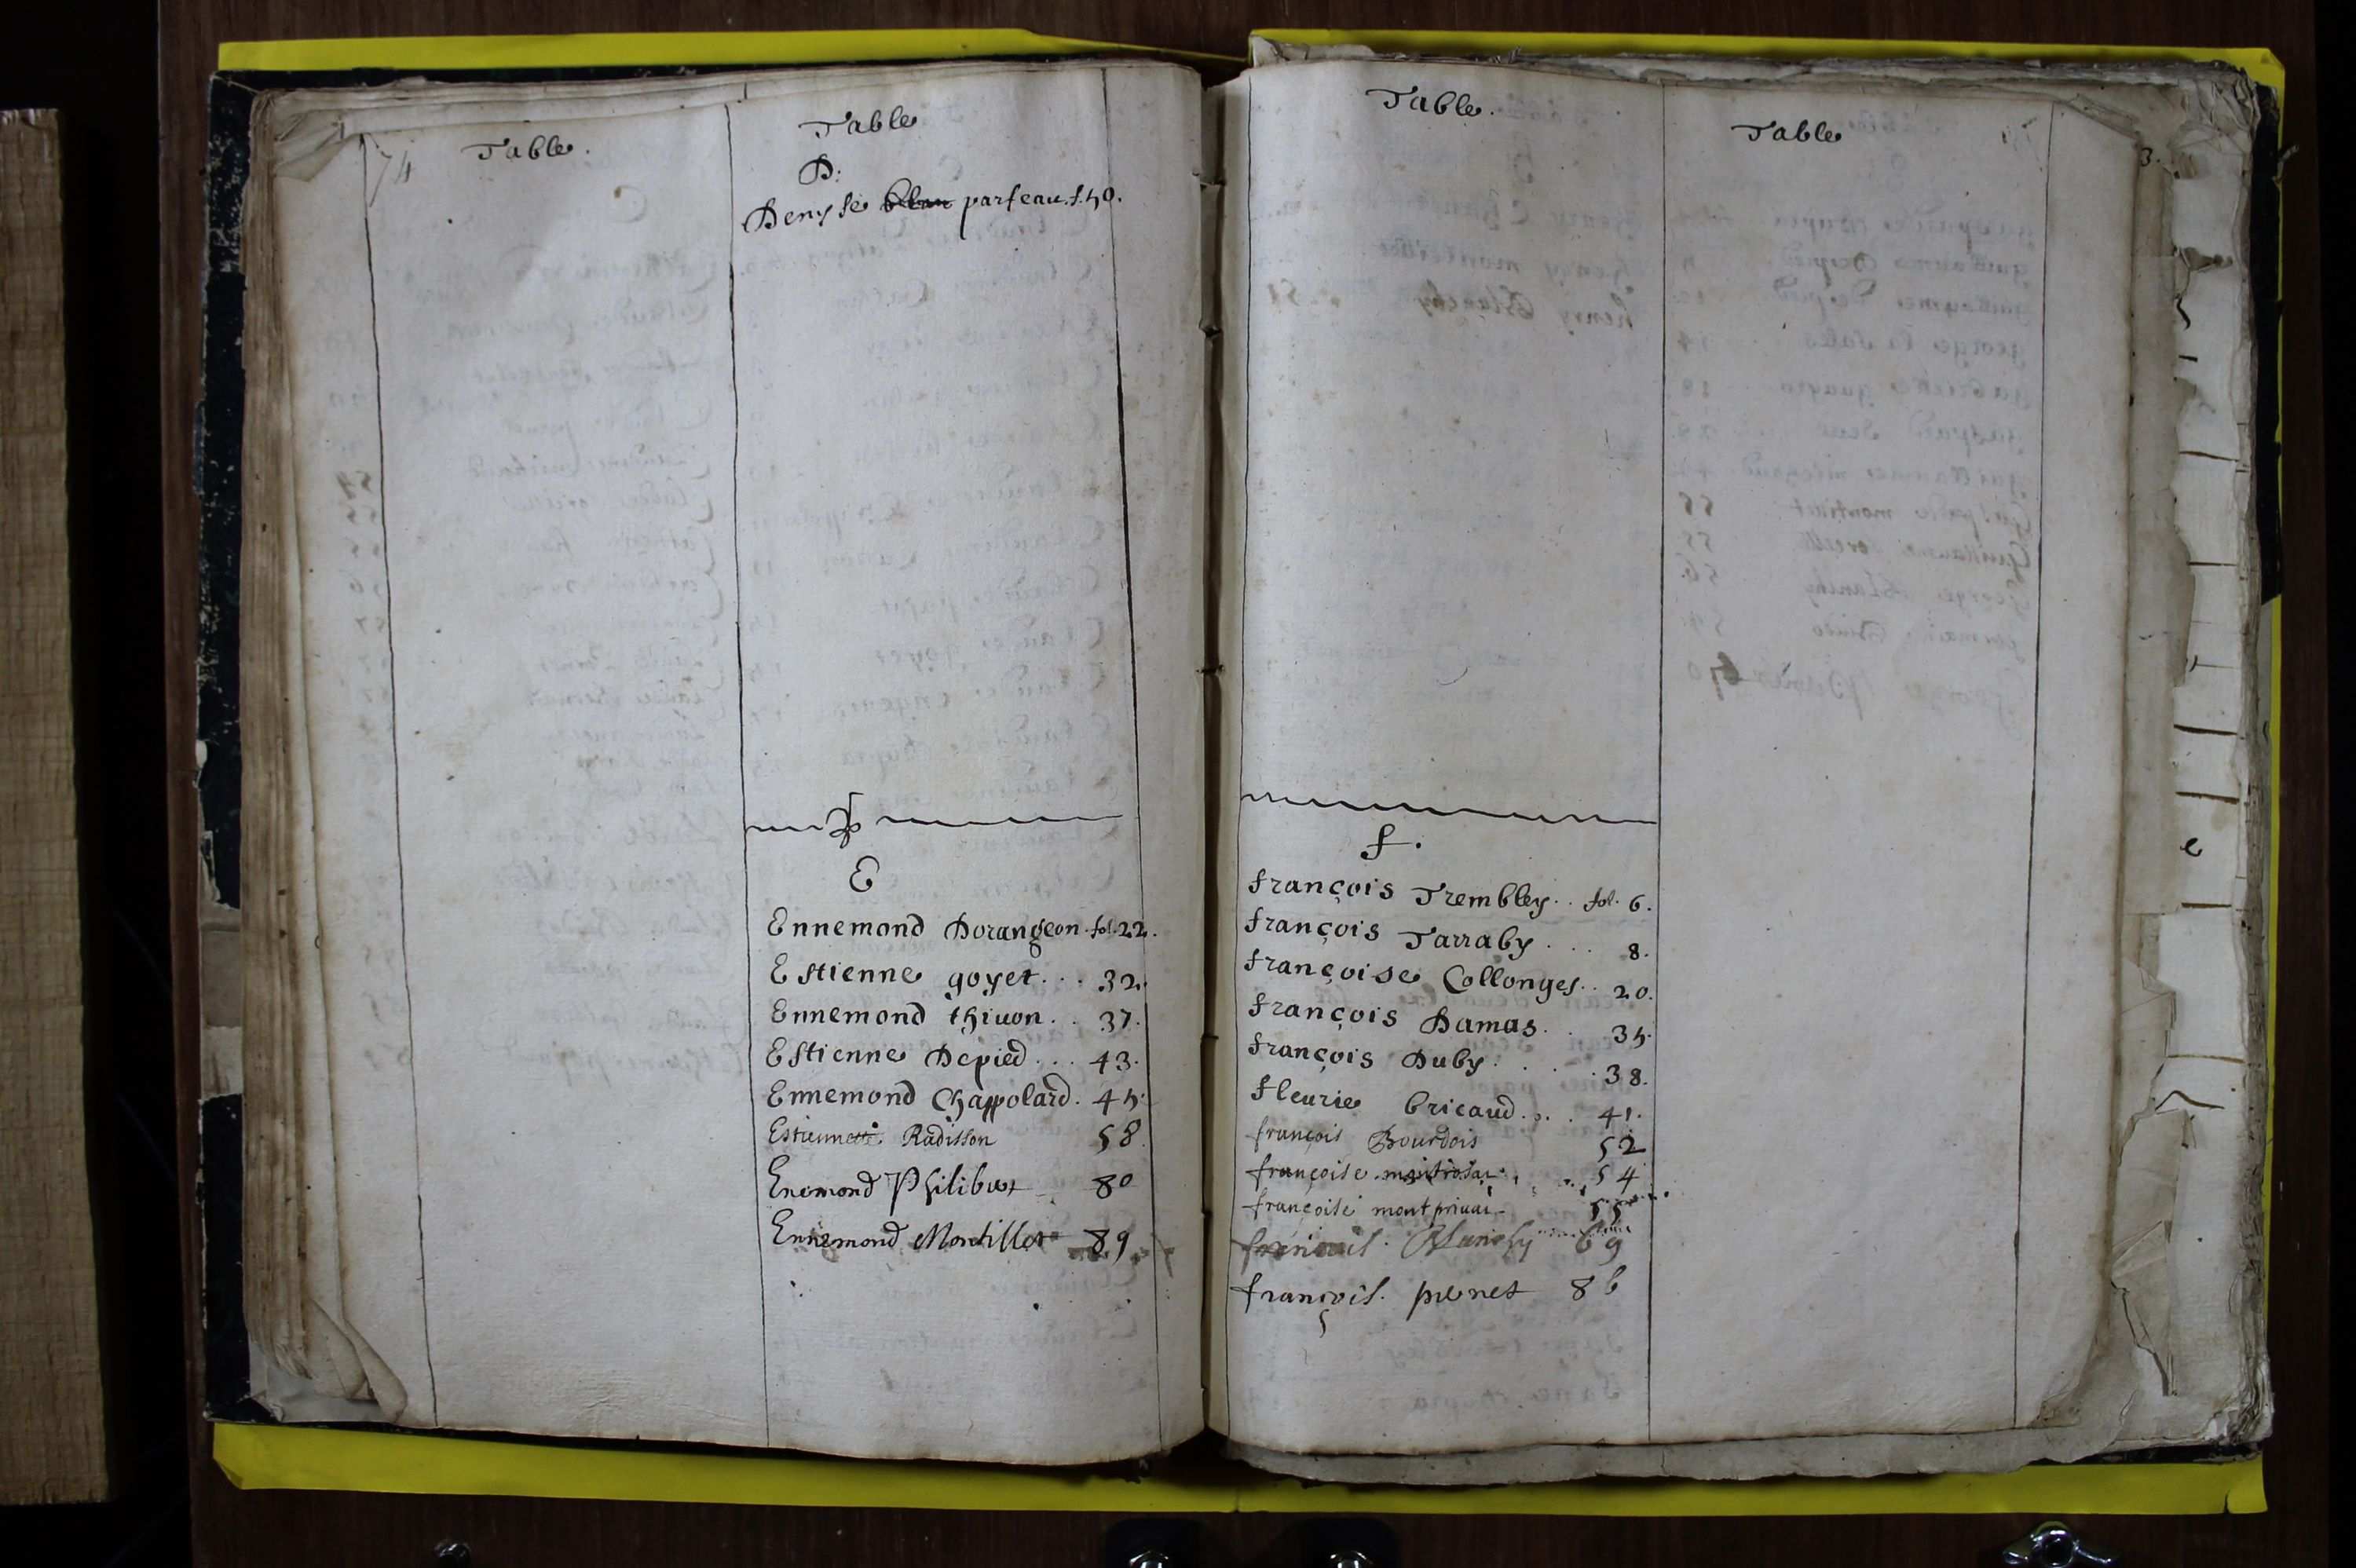 74
Table.
Table
D:
Denyse parseau. f. 50.
E
Ennemond Dorangeon. fol. 22.
Estienne goyet... 32.
Ennemond thiuon.. 37.
Estienne Depied... 43.
Ennemond Chappolard. 45.
Estiennette. Radisson 58.
Enemond Philibert 80
Ennemond Montillet 89
Table.
f.
françois Trembley.. fol. 6.
françois Tarraby.... 8.
françoise Collonges.. 20.
françois Damas.. 35.
françois Duby.... 38.
fleurie bricaud.... 41.
françois Bourdois 52
françoise 54
françoise 55
Blanchy 69
françois. prenet 86
Table
3.
e